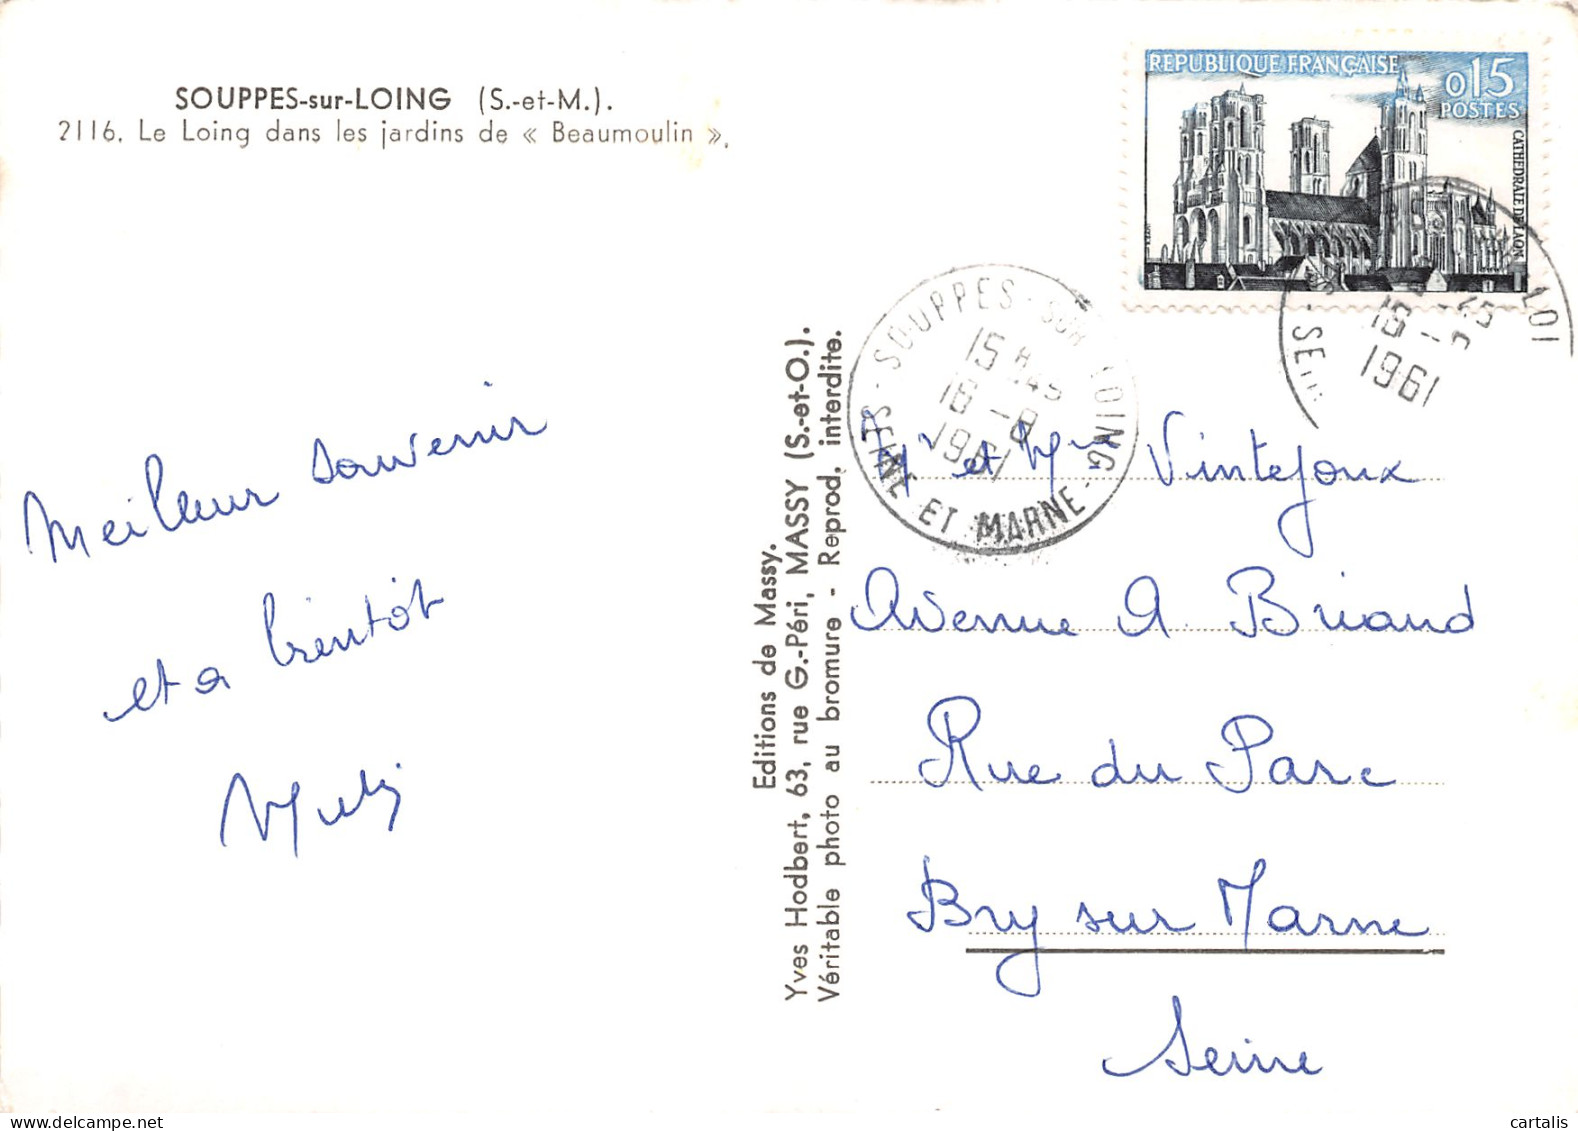 SOUPPES-sur-LOING (S.-et-M.).
2116. Le Loing dans les jardins de « Beaumoulin ».
REPUBLIQUE FRANÇAISE
0,15
POSTES
CATHEDRALE DE LAON
SOUPPES-SUR-LOING-
SEINE ET MARNE-
15H45
16-8
1961
LOI
45
16-
1961
SEI
Meilleur souvenir
et a bientôt
Editions de Massy.
Yves Hodbert, 63, rue G.-Péri, MASSY (S.-et-O.).
Véritable photo au bromure - Reprod. interdite.
Mr et Mme Vintejoux
Avenue A Briand
Rue du Parc
Bry sur Marne
Seine
cartalis